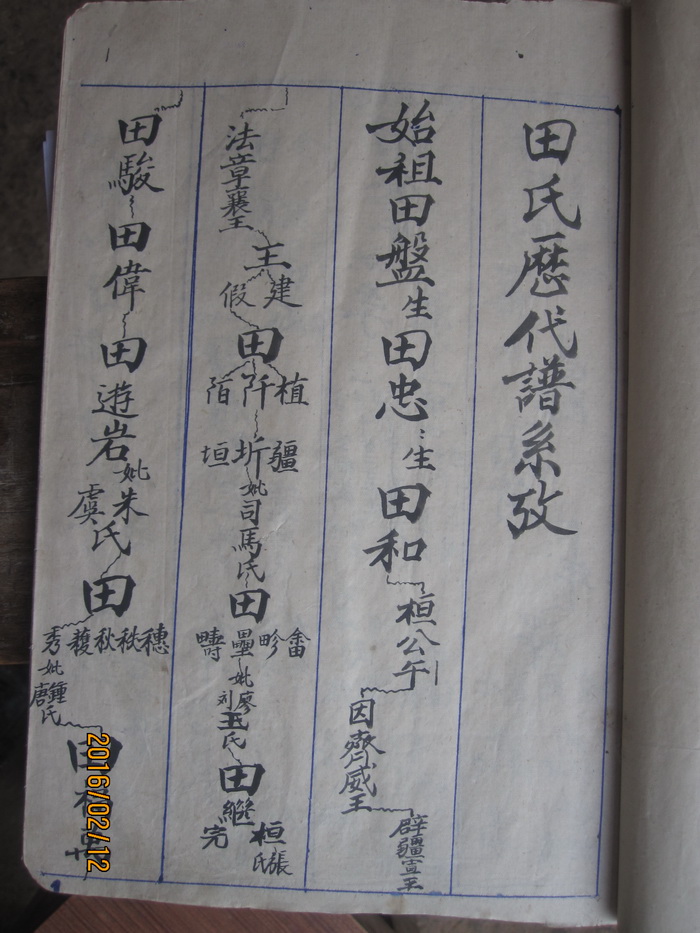 田氏歷代譜系攷
始祖田盤生田忠：生田和
桓公午
因齊威王
辟疆宣王
法章襄王
王
建
假
田
植
阡
陌
疆
圻
垣
妣司馬氏
田
畬
畛
壘
疇
妣廖
刘
氏
田
繼
桓
完
張氏
田駿
田偉
田遊岩
妣朱
虞
氏
田
穗
秩
秋
馥
秀
妣
鍾
唐
氏
田
2016/02/12